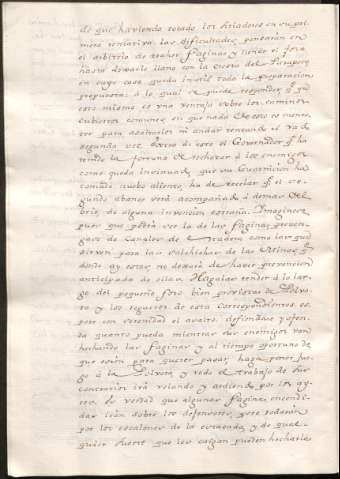 de que haviendo tocado los sitiadores en su pri-
mera tentativa las dificultades, pensarán en
el arbitrio de traher faginas y llenar el foso
hasta dexarlo llano con la cresta del Parapeto
en cuyo caso queda inutil toda la preparacion
propuesta: á lo qual se puede responder, q.e
esto mismo es una ventaja sobre los caminos
cubiertos comunes en que nada de esto es menes-
ter para asaltarlos ni andar tentando el vado
segunda vez. Acerca de esto el Governador q.e ha
tenido la fortuna de rechazar á los enemigos
como queda insinuado, que su Guarnicion ha
cobrado nuebo aliento, ha de recelar q.e el se-
gundo abance verá acompañado á demas del
brio de alguna invencion estraña. Imaginese
pues que podrá ser la de las faginas
de Canales de madera como las que
sirven para las salchichas de las Minas, q.e
donde ay estas, no dexará de haver provision
anticipada de ellas. Hagalas tender á lo lar-
go del pequeño foso bien provistas de Polvo-
ra y los regueros de esta correspondientes, es-
pere con serenidad el asalto, defiendase y ofen-
da quanto pueda mientras sus enemigos van
hechando las faginas y al tiempo oportuno de
que estén para querer pasar, haga poner fue-
go á la Polvora y todo el trabajo de sus
contrarios irá volando y ardiendo por los ay-
res. Es verdad que algunas faginas encendi-
das irán sobre los defensores, pero rodarán
por los escalones de la estacada, y de qual-
quier suerte que les caigan pueden hecharlas